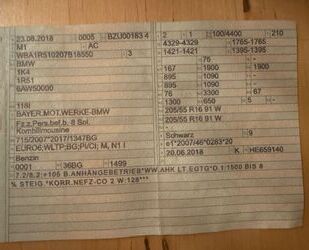 23.08.2018 0005 BZU001834 2 1 100/4400 210
M1 AC 4329-4329 1765-1765
WBA1R510207B18550 3 1421-1421 1395-1395
BMW 75
1K4 167 1900 1900
1R51 895 1090
6AW50000 895 1090
76 3300 67
118i 1300 650 5
BAYER.MOT.WERKE-BMW 205/55 R16 91 W
Fz.z.Pers.bef.b. 8 Spl. 205/55 R16 91 W
Kombilimousine
715/2007*2017/1347BG Schwarz 9
EURO6;WLTP;BG;PI/CI; M, N1 I e1*2007/46*0283*20
Benzin 20.06.2018 K HE659140
0001 36BG 1499
7.2/8.2:+105 B.ANHÄNGEBETRIEB*WW.AHK LT.EGTG*D.1:1500 BIS 8
% STEIG.*KORR.NEFZ-CO 2 W:128***